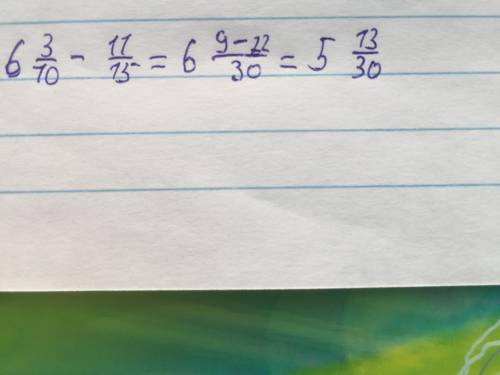 6 3/10 - 11/15 = 6 9-22/30 = 5 13/30